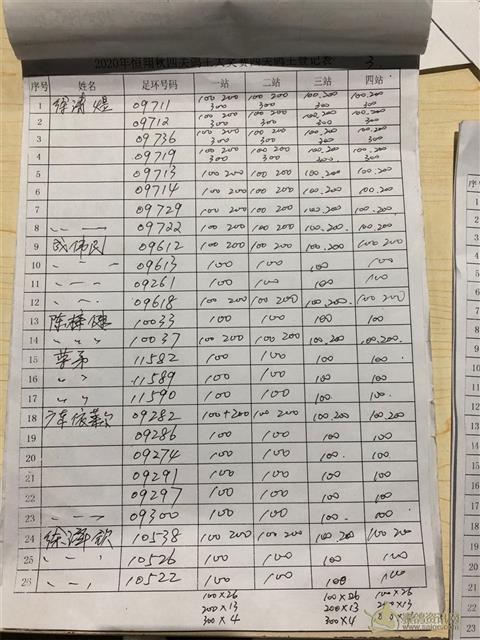 2020年恒翔秋四关鸽王大奖赛四关鸽王登记表 3
序号 姓名 足环号码 一站 二站 三站 四站
1 徐清煜 09711 100 200 300 100 200 300 100.200 300 100.200 300
2 09712 100 200 300 100 200 300 100.200 300 100.200 300
3 09736 100 200 300 100 200 300 100.200 300 100.200 300
4 09719 100 200 300 100 200 300 100.200 300 100.200 300
5 09713 100 200 100 200 100.200 100.200
6 09714 100 200 100 200 100.200 100.200
7 09729 100 200 100 200 100.200 100.200
8 09722 100 200 100 200 100.200 100.200
9 伟民 09612 100 200 100 200 100.200 100 200
10 09613 100 100 100 100
11 09261 100 100 100 100
12 09618 100 200 100 200 100.200 100 200
13 陈梓健 10033 100 100 100 100
14 10037 100 200 100 200 100.200 100.200
15 11582 100 100 100 100
16 11589 100 100 100 100
17 11590 100 100 100 100
18 09282 100+200 100 200 100.200 100.200
19 09286 100 100 100 100
20 09274 100 100 100 100
21 09291 100 100 100 100
22 09297 100 100 100 100
23 09300 100 100 100 100
24 徐泽钦 10538 100 200 100 200 100.200 100 200
25 10526 100 100 100 100
26 10522 100 100 100 100
100×26 100×26 100×26
200×13 200×13 200×13
300×4 300×4